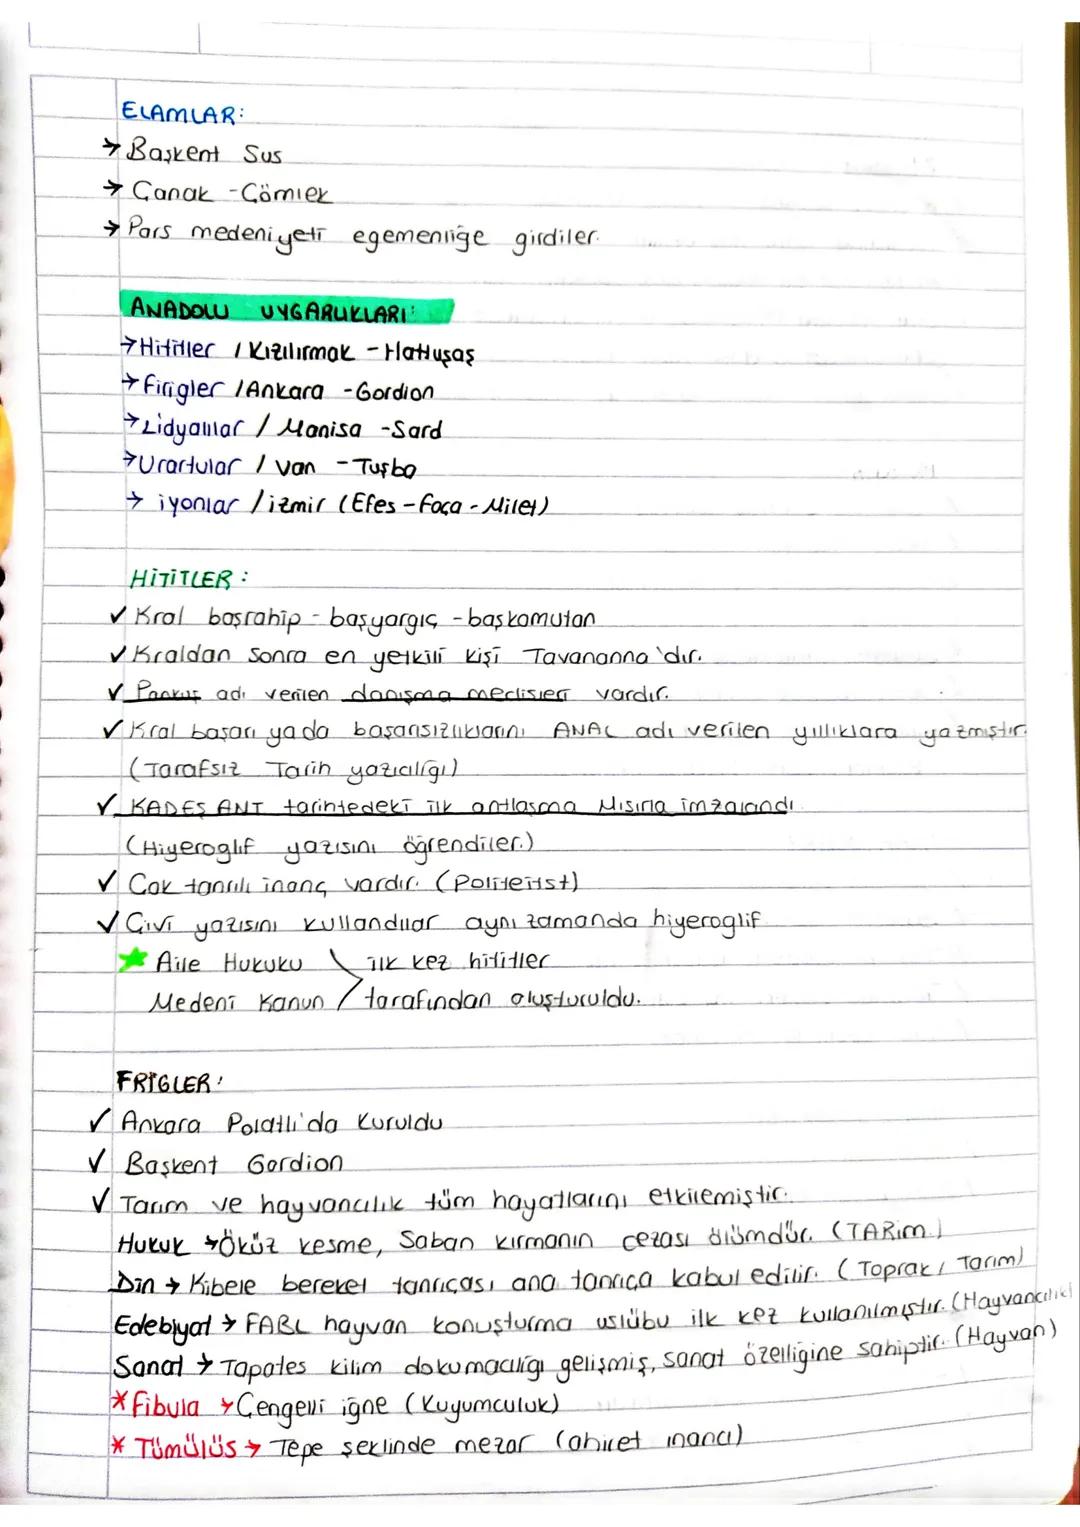 ELAMLAR:
→ Başkent Sus
→ Çanak - Çömlek
→ Pars medeniyeti egemenliğe girdiler.
ANADOLU UYGARLIKLARI:
→ Hititler / Kızılırmak - Hattuşaş
→ Firigler / Ankara - Gordion
→ Lidyalılar / Manisa - Sard
→ Urartular / Van - Tuşba
→ iyonlar / izmir (Efes - Foça - Milet)
HİTİTLER:
✓ Kral başrahip - başyargıç - başkomutan
✓ Kraldan sonra en yetkili kişi Tavananna'dır.
✓ Pankuş adı verilen danışma meclisleri vardır.
✓ Kral başarı ya da başarısızlıklarını ANAL adı verilen yıllıklara yazmıştır.
(Tarafsız Tarih yazıcılığı)
✓ KADEŞ ANT tarihtedeki ilk antlaşma Mısırla imzalandı.
(Hiyeroglif yazısını öğrendiler.)
✓ Çok tanrılı inanç vardır. (Politeist)
✓ Çivi yazısını kullandılar aynı zamanda hiyeroglif
★ Aile Hukuku \ ilk kez hititler
Medeni Kanun / tarafından oluşturuldu.
FRİGLER:
✓ Ankara Polatlı'da Kuruldu
✓ Başkent Gordion
✓ Tarım ve hayvancılık tüm hayatlarını etkilemiştir.
Hukuk → Öküz kesme, Saban kırmanın cezası ölümdür. (TARım)
Din → Kibele bereket tanrıçası ana tanrıça kabul edilir. (Toprak / Tarım)
Edebiyat → FABL hayvan konuşturma uslübu ilk kez kullanılmıştır. (Hayvancılık)
Sanat → Tapates kilim dokumacılığı gelişmiş, sanat özelliğine sahiptir. (Hayvan)
* Fibula → Çengelli iğne (Kuyumculuk)
* Tümülüs → Tepe şeklinde mezar (ahiret inancı)